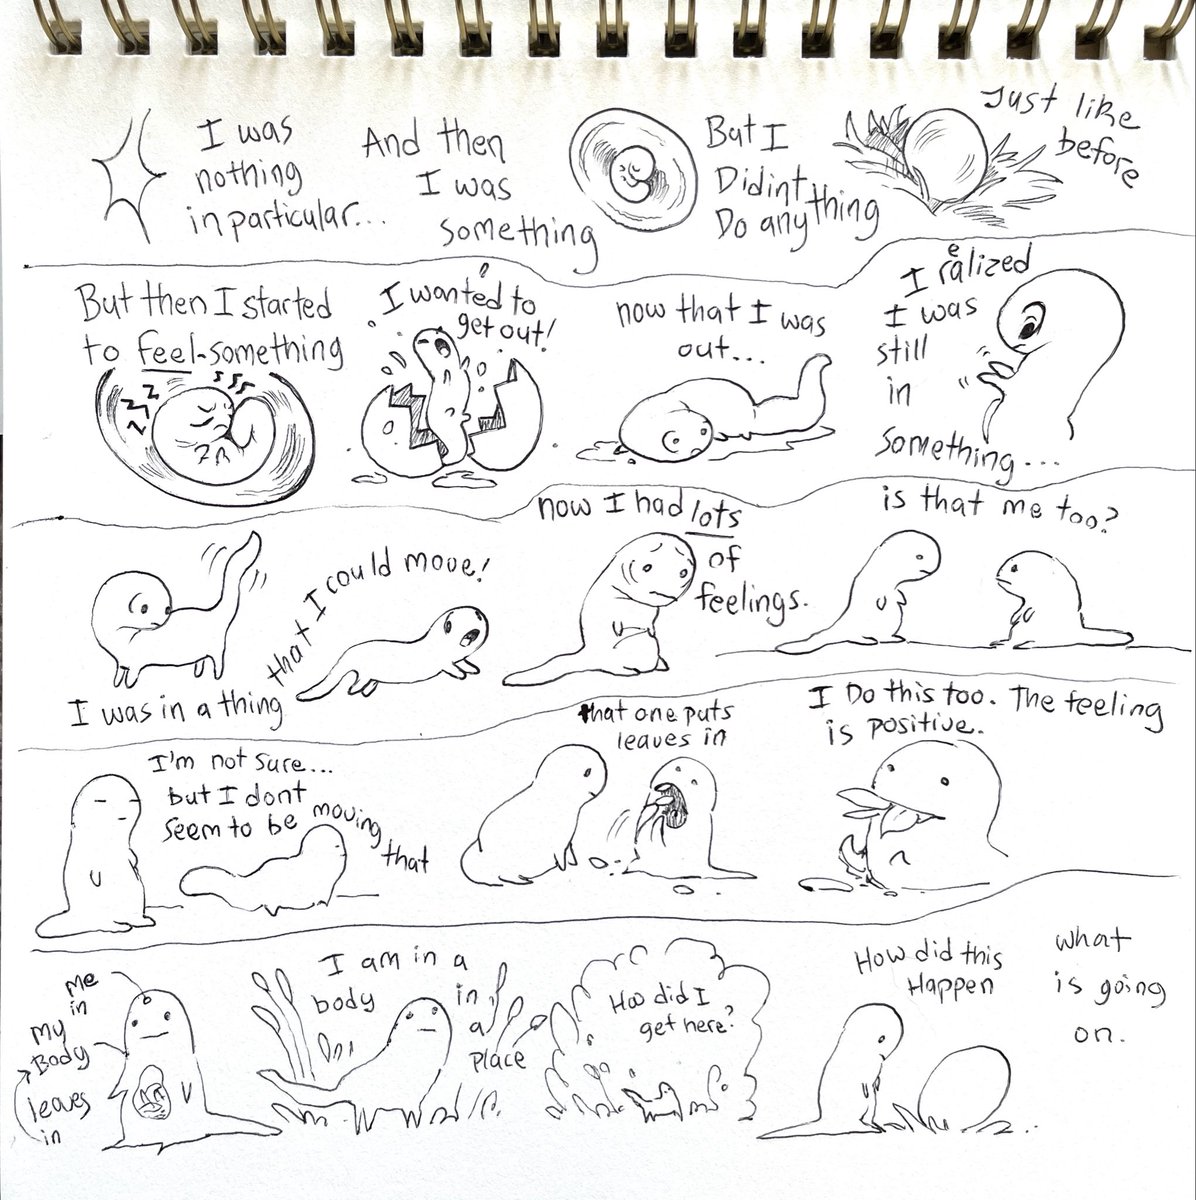 I was
nothing
in particular...
And then
I was
something
But I
Didint
Do anything
Just like
before
But then I started
to feel-something
I wanted to
get out!
now that I was
out...
I realized
I was
still
in
something...
I was in a thing
that I could move!
now I had lots
of
feelings.
is that me too?
I'm not sure...
but I dont
seem to be moving
that
that one puts
leaves in
I Do this too. The feeling
is positive.
me
in
my
Body
leaves
in
I am in a
body
in
a
place
How did I
get here?
How did this
Happen
what
is going
on.